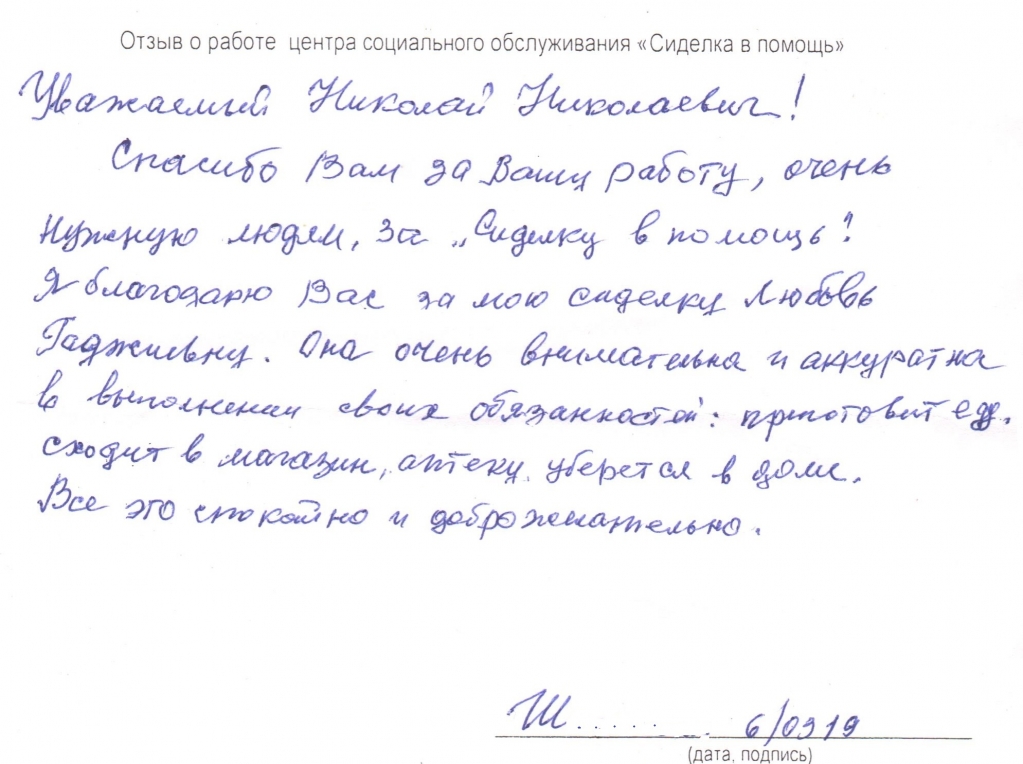 Отзыв о работе центра социального обслуживания «Сиделка в помощь»
Уважаемый Николай Николаевич!
Спасибо Вам за Вашу работу, очень
нужную людям, за „Сиделку в помощь"!
Я благодарю Вас за мою сиделку Любовь
Гаджиевну. Она очень внимательна и аккуратна
в выполнении своих обязанностей: приготовит еду.
сходит в магазин, аптеку, уберется в доме.
Все это спокойно и доброжелательно.
Ш....... 6/0319
(дата, подпись)